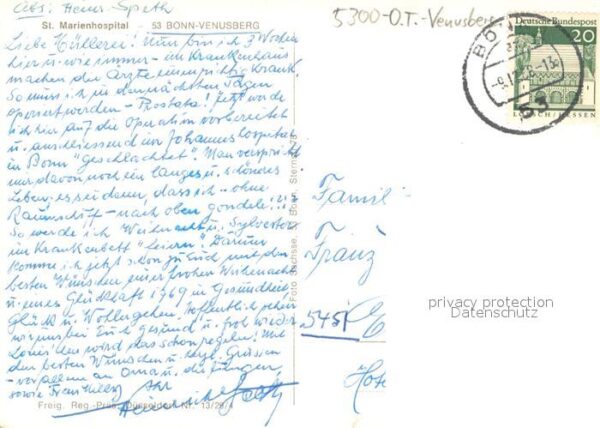 Abs: Heinr. Spath
St. Marienhospital - 53 BONN-VENUSBERG
5300-O.T.-Venusberg
Deutsche Bundespost
20
LORSCH/HESSEN
BONN
53
Liebe ! Nun bin ich 3 Wochen
hier u. wie immer - im Krankenhaus
machen die Ärzte einen richtig krank.
So muss ich in den nächsten Tagen
operiert werden - Prostata! Jetzt werde
ich hier auf die Operation vorbereitet
u. anschliessend im Johanneshospital
in Bonn "geschlachtet". Man verspricht
mir davon noch ein langes u. schönes
Leben, es sei denn, dass ich - ohne
Raumschiff - nach oben gondele!!
So werde ich Weihnacht u. Sylvester
im Krankenbett "feiern". Darum
komme ich jetzt schon zu Euch mit den
besten Wünschen einer frohen Weihnacht
u. eines Glückhaft 1969 in Gesundheit
Glück u. Wohlergehen. Hoffentlich sehen
wir uns bei Euch gesund u. froh wieder
den wird das schon regeln! Mit
den besten Wünschen u. Grüssen
- vor allem an Oma u. die Jungen,
sowie Frau
Ihr
Foto Sachsse, Bonn, Sternstr.
Familie
Franz
545
Hote
privacy protection
Datenschutz
Freig. Reg.-Präs. Düsseldorf Nr. 13/29/4